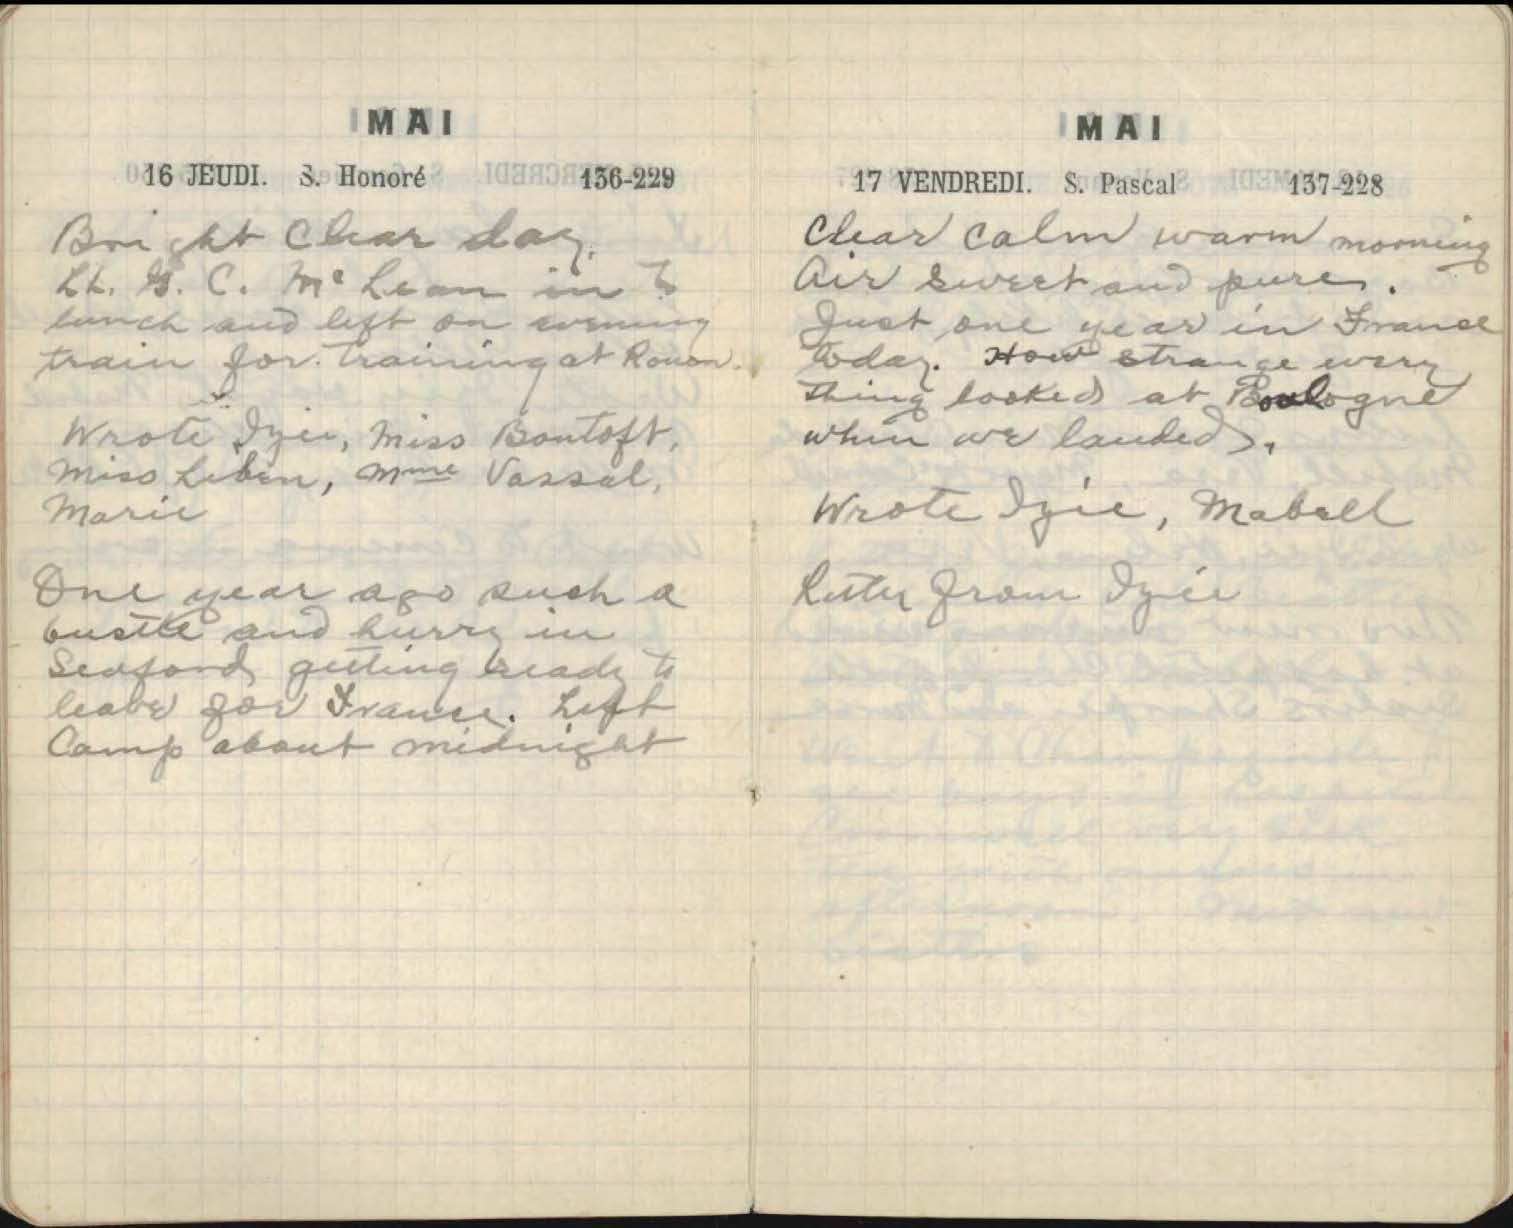 MAI
16 JEUDI. S. Honoré 136-229
Bright Clear day.
Lt. G. C. McLean in to
lunch and left on evening
train for training at Rouen.
Wrote Izie, Miss Bontoft,
Miss Leben, Mme Vassal,
Marie
One year ago such a
bustle and hurry in
Seaford getting ready to
leave for France. Left
Camp about midnight
MAI
17 VENDREDI. S. Pascal 137-228
Clear calm warm morning
Air sweet and pure.
Just one year in France
today. How strange every
thing looked at Boulogne
when we landed.
Wrote Izie, Mabell
Letter from Izie